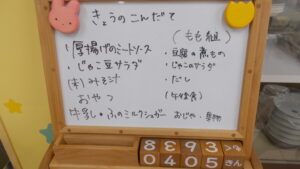 きょうのこんだて
(もも組)
・厚揚げのミートソース
・じゃこ豆サラダ
(米) みそ汁
おやつ
牛乳・ふのミルクシュガー
・豆腐の煮もの
・じゃこのサラダ
・だし
(午後食)
おじや・果物
8 3 9 3
0 4 0 5 さん